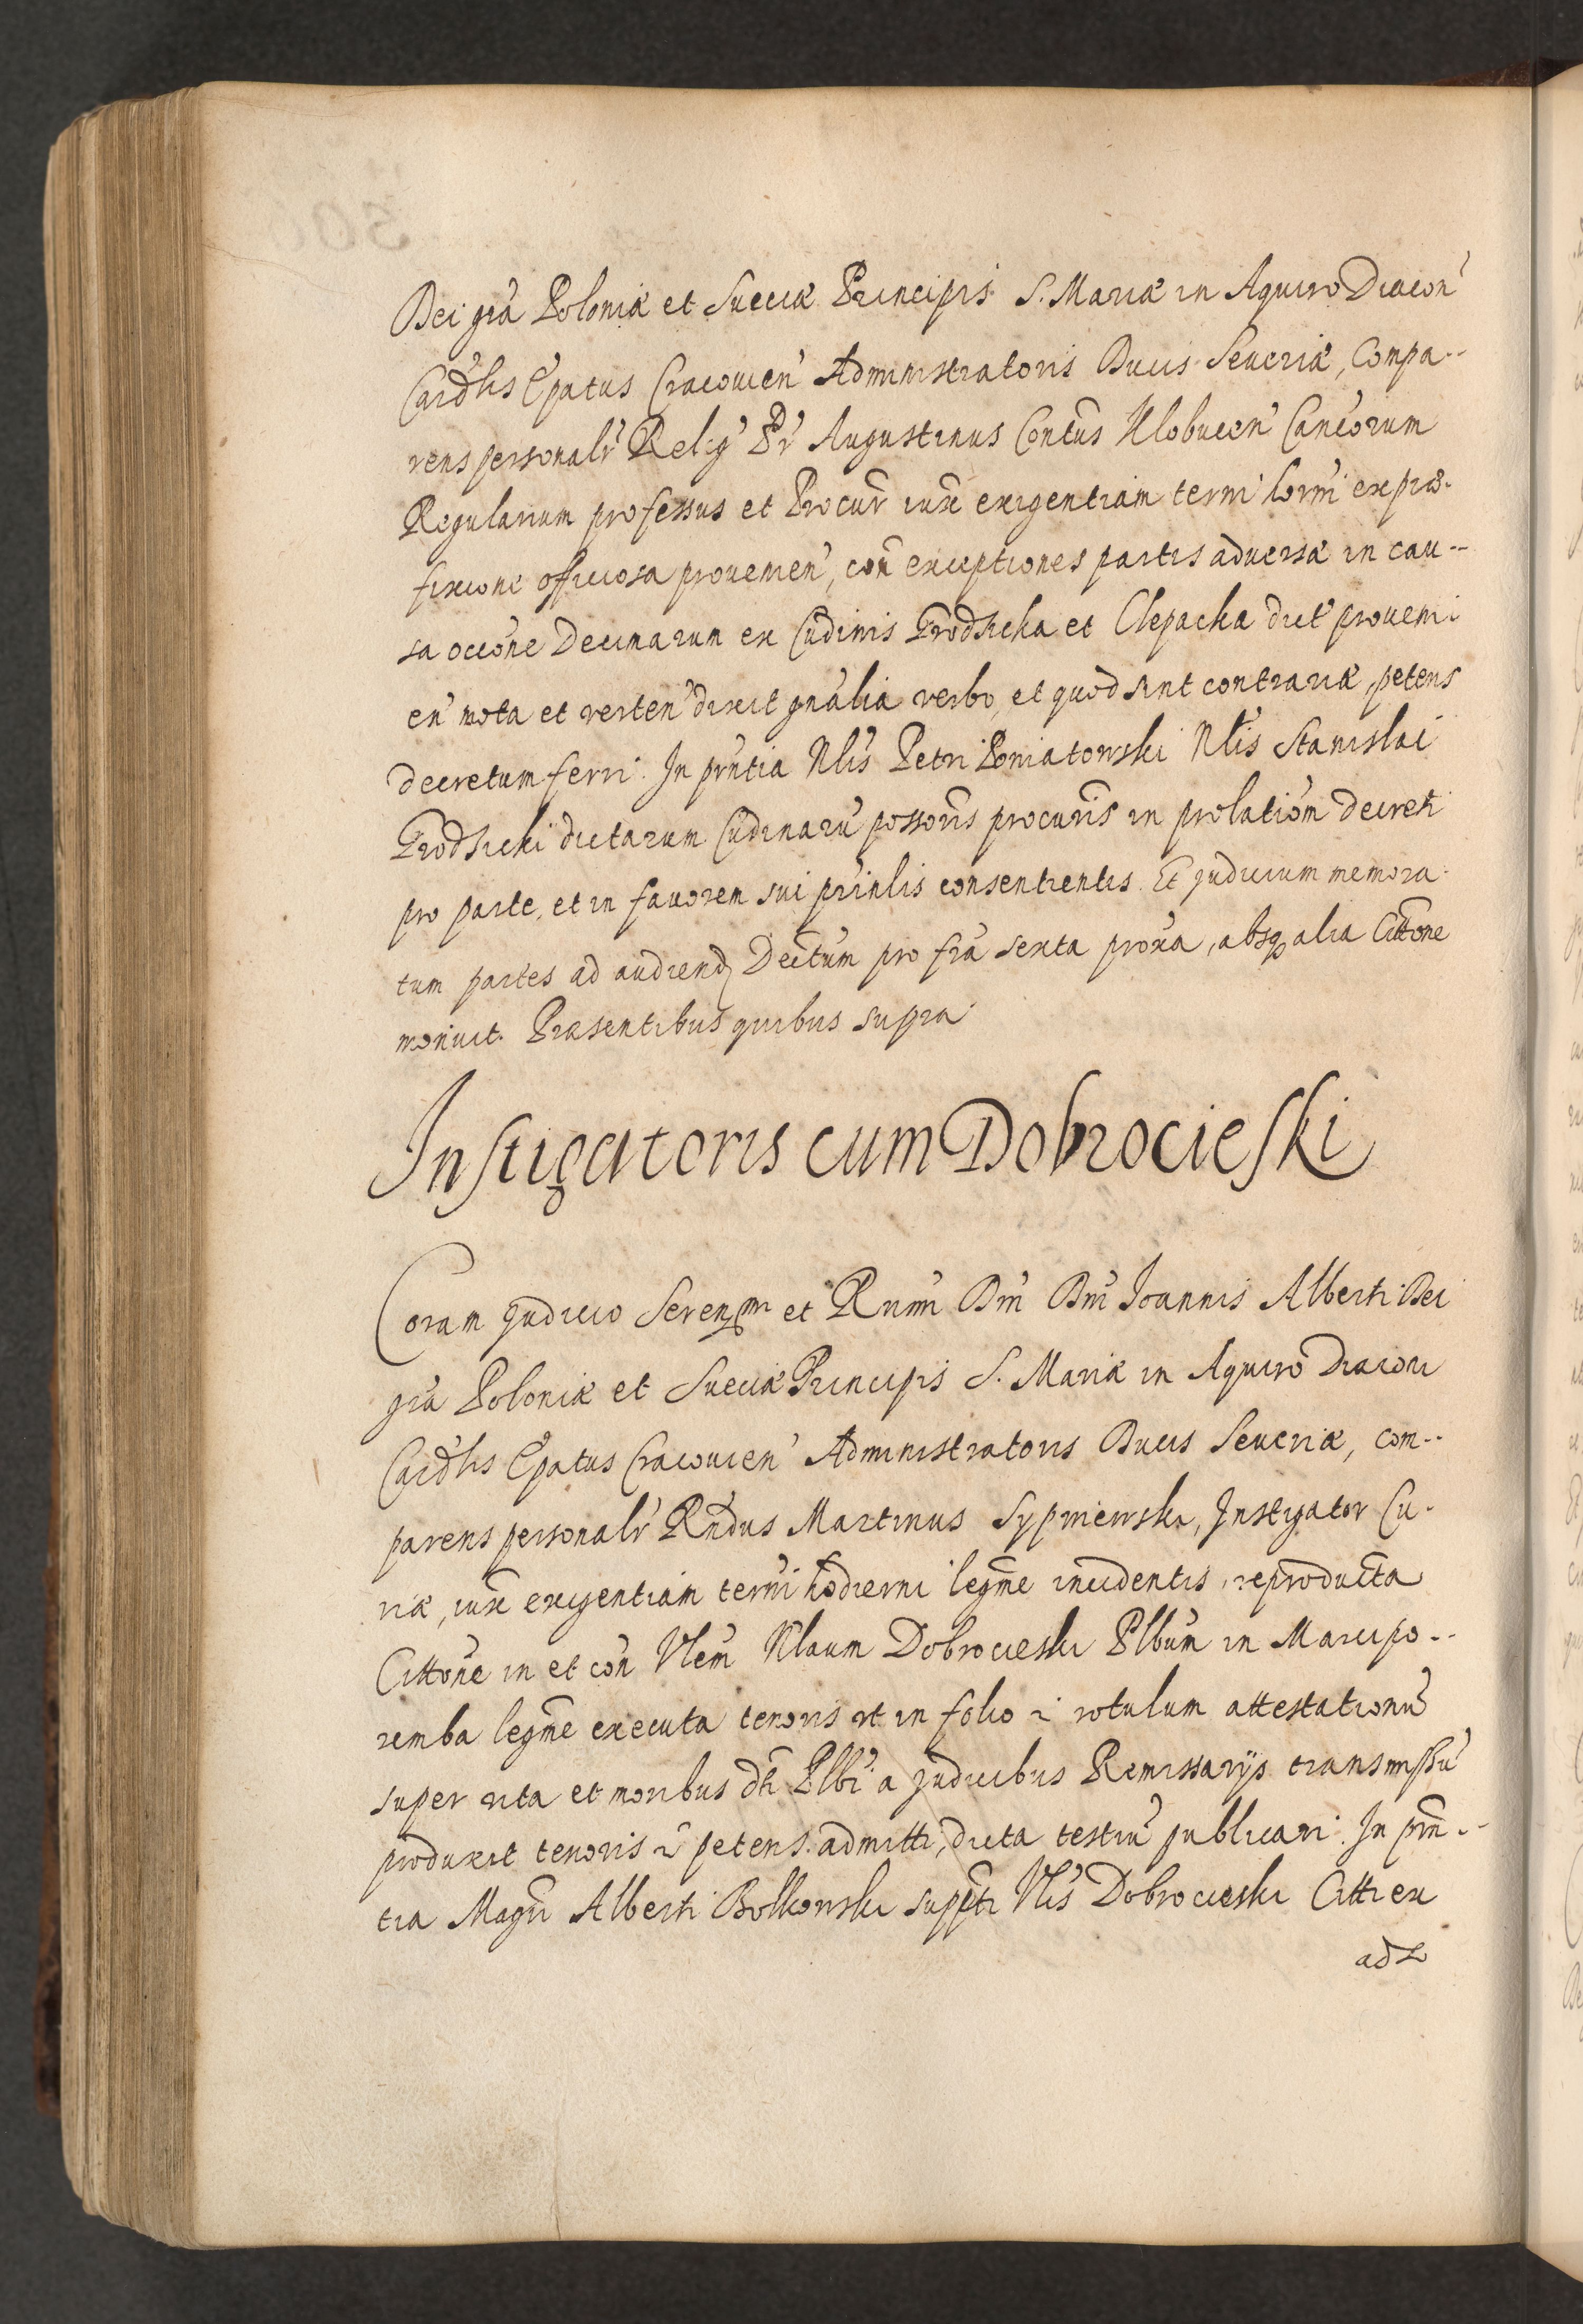 Dei gra̅ Poloniæ et Sueciæ Principis S. Mariæ in Aquiro Diacon̕
Cardlis Ep̕atus Cracouien̕ Administratoris Ducis Seueriæ, Compa--
rens personalr̕ Relig̕ Pr̕ Augustinus Cont̅us Klobucen̕ Canc̕orum
Regularium professus et Procur̅ iux̅ exigentiam termi̕ horni̕ ex præ-
fixione officiosa prouenien̕, con̅ exceptiones partis aduersæ in cau--
sa occ̕one Decimarum ex Cudinis Grodzicka et Clepacka dict̕ proueni
en̕ mota et verten̕ dixit gn̕alia verbo, et quod sint contrariæ, petens
decretum ferri. In pn̕tia Nlis̕ Petri Poniatowski Nlis̕ Stanislai
Grodzicki dictarum Cudinaru̕ possoris̅ procuris̅ in prolation̕m decreti
pro parte, et in fauorem sui prin̕lis consentientis. Et Judicium memora-
tum partes ad audiend Dect̅um pro fr̕a sexta prox̕a, absq alia Citt̅one
monuit. Præsentibus quibus supra
Instigatoris cum Dobrocieski
Coram Judicio Seren̅mi et Rnmi̕ Dni̕ Dni̕ Joannis Alberti Dei
gra̕ Poloniæ et Sueciæ Principis S. Mariæ in Aquiro Diaconi
Cardlis Ep̕atus Cracouien̕ Administratoris Ducis Seueriæ, com--
parens personalr̕ Rn̅dus Martinus Sypniewski, Instigator Cu-
riæ, iux̅ exigentiam termi̕ hodierni legm̅e incidentis, reproducta
Citto̕ne in et con̕ Vlem̕ Nlaum Dobrocieski Plbum̕ in Marcipo--
remba legm̅e executa tenoris vt in folio rotulum attestationu̅
super vita et moribus dti̅ Plbi̕ a Judicibus Remissarijs transmissu̕
produxit tenoris petens admitti, dicta testiu̅ publicari. In prn̅--
tia Magri̅ Alberti Bolkowski suppti̅ Vlis̕ Dobrocieski Citti ex
ad